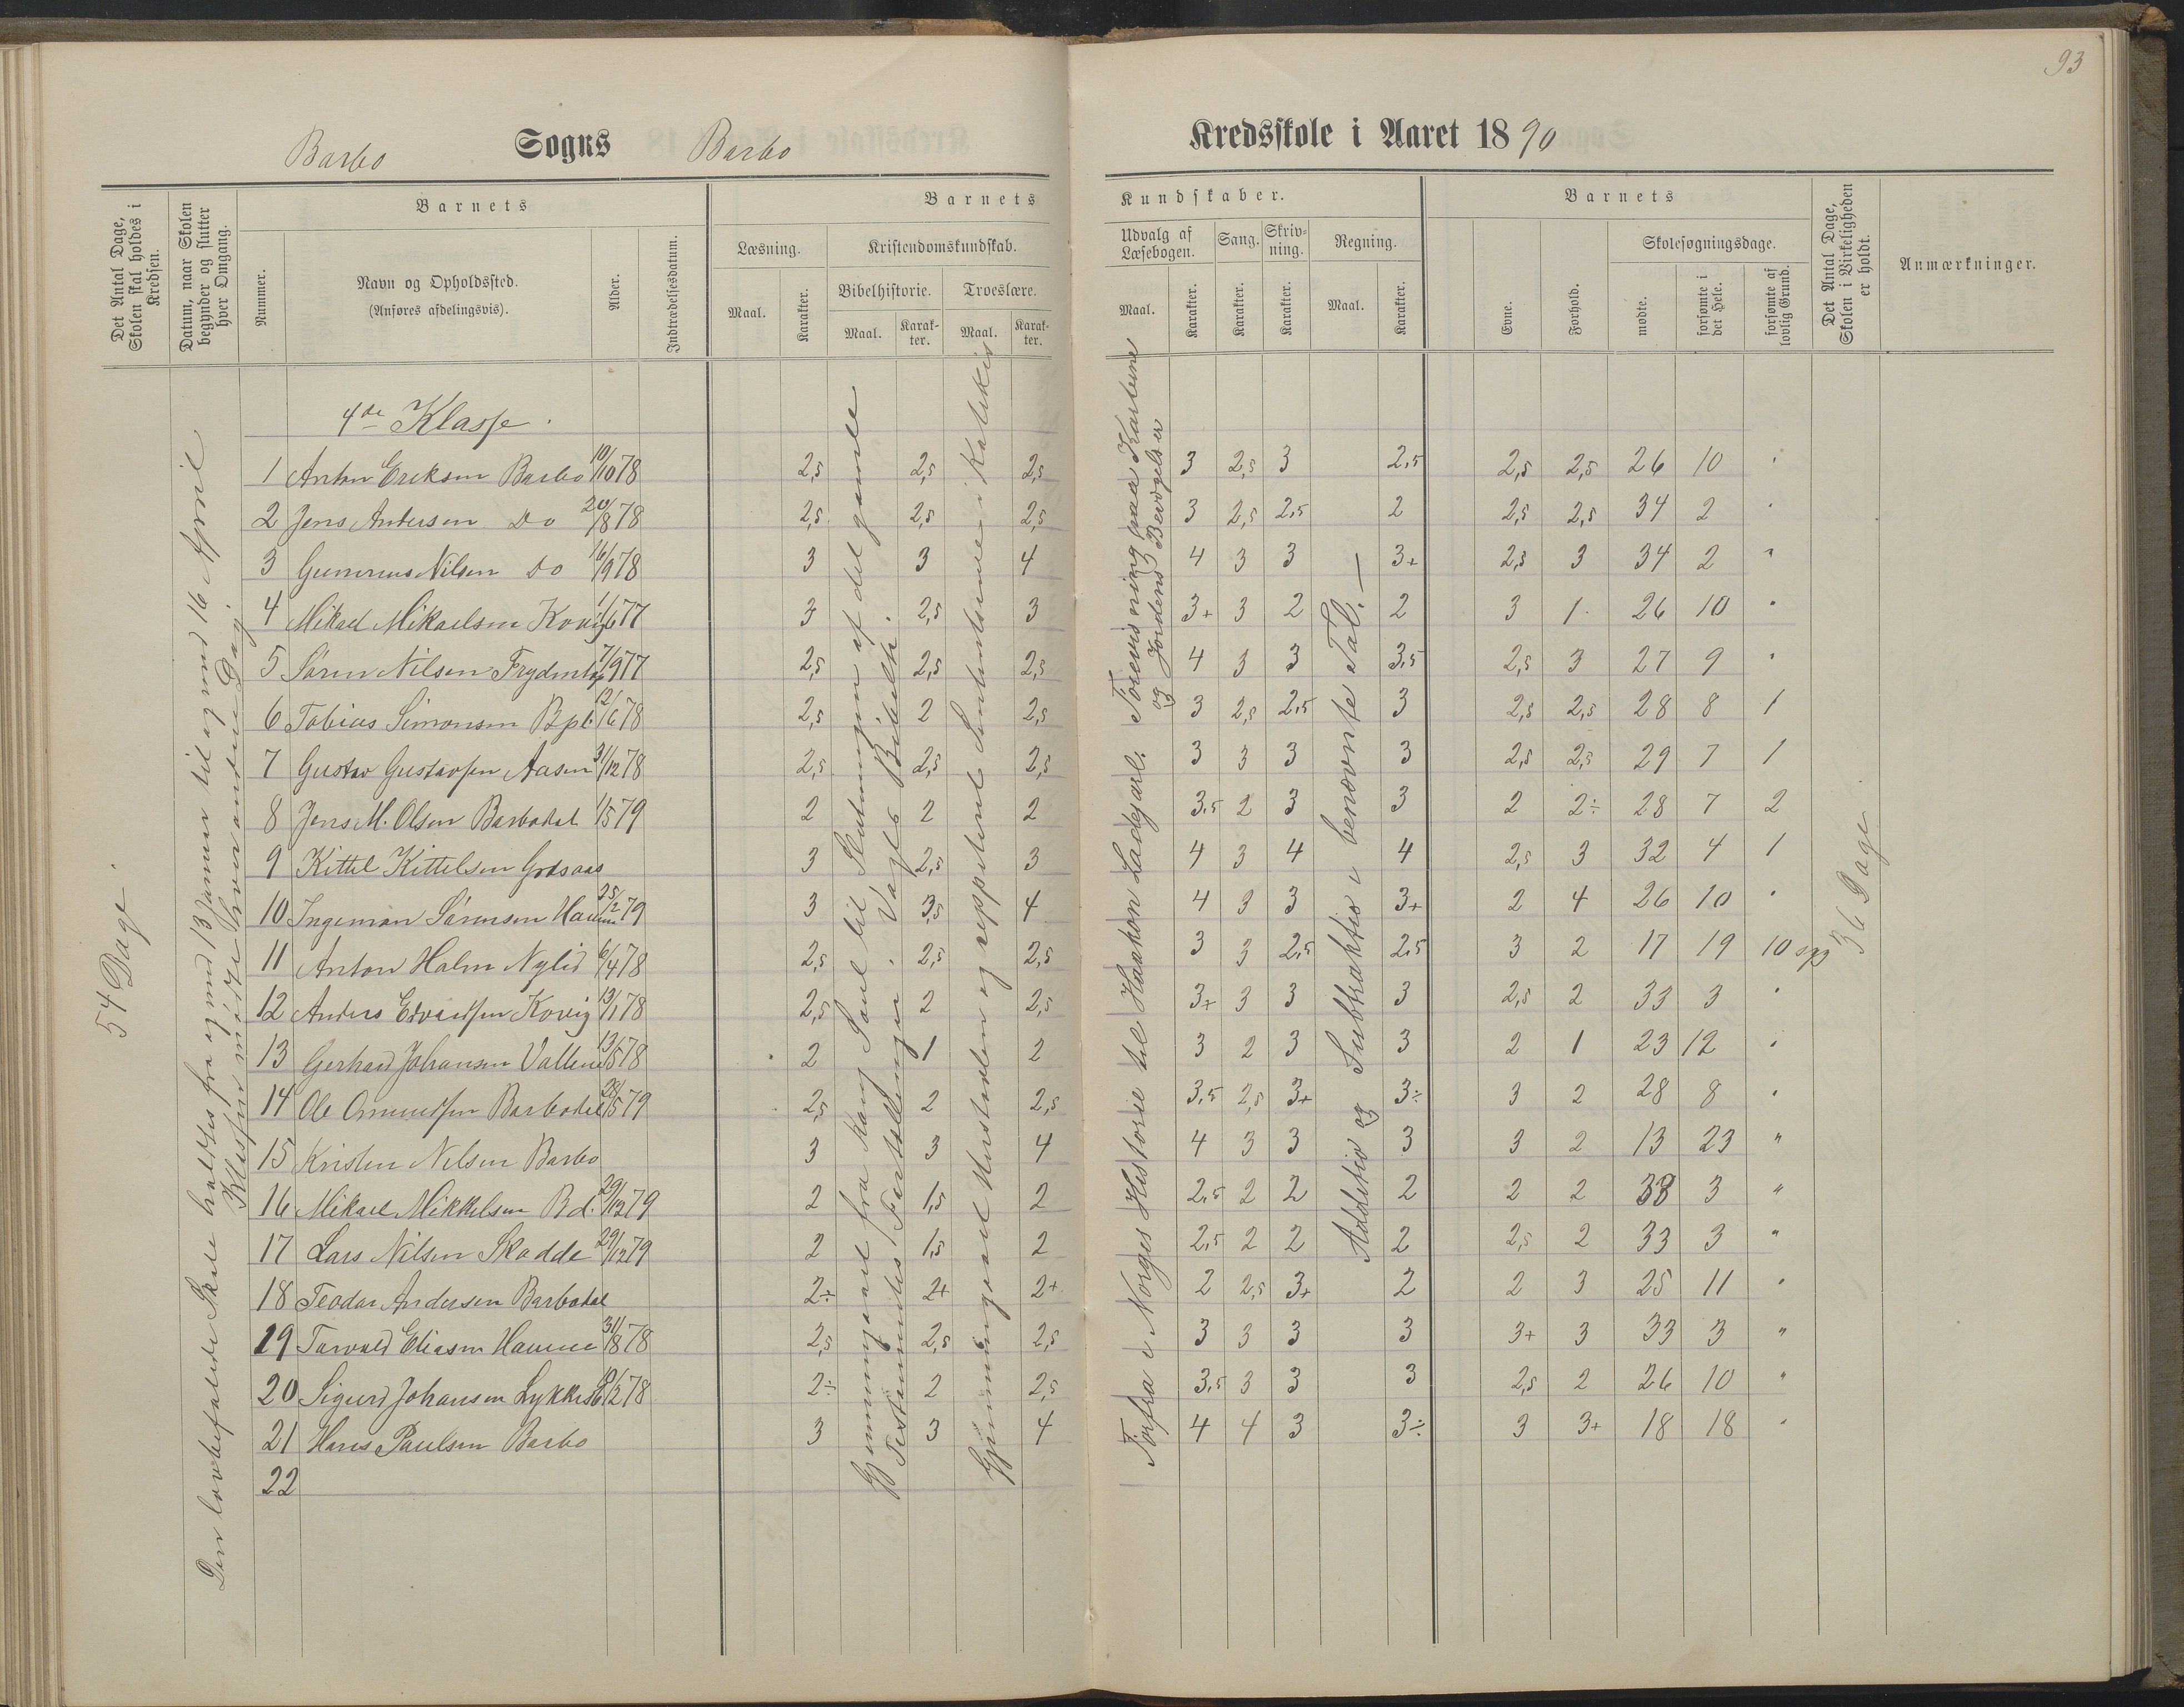 93
Barbo Sogns Barbo Kredsskole i Aaret 1890
Det Antal Dage, Skolen skal holdes i Kredsen.
Datum, naar Skolen begynder og slutter hver Omgang.
Barnets
Nummer.
Navn og Opholdssted.
(Anføres afdelingsvis).
Alder.
Indtrædelsesdatum.
Barnets Kundskaber.
Læsning.
Maal. Karakter.
Kristendomskundskab.
Bibelhistorie. Troeslære.
Maal. Karakter. Maal. Karakter.
Udvalg af Læsebogen.
Maal. Karakter.
Sang.
Karakter.
Skrivning.
Karakter.
Regning.
Maal. Karakter.
Barnets
Evne. Forhold.
Skolesøgningsdage.
mødte. forsømte i det Hele. forsømte af lovlig Grund.
Det Antal Dage, Skolen i Virkeligheden er holdt.
Anmærkninger.
54 Dage.
Den lovbefalede Skole holdtes fra og med 13 Januar til og med 16 April
Klassen mødte hver anden Dag.
Gjennemgaaet fra Kong Saul til Slutningen af det gamle
Testamentes Fortællinger. Vogts Bibelhi.
Gjennemgaaet
Forfra i Norges Historie til Haakon Ladejarl. Forevisning paa Karterne
og Jordens Bevægelser
Addition og Subtraktion i benævnte Tal. —
36 Dage.
4de Klasse.
1 Anton Eriksen Barbo 10/10 78 2,5 2,5 2,5 3 2,5 3 2,5 2,5 2,5 26 10 "
2 Jens Andersen Do 20/8 78 2,5 2,5 2,5 3 2,5 2,5 2 2,5 2,5 34 2 "
3 Gunerius Nilsen Do 16/9 78 3 3 4 4 3 3 3+ 2,5 3 34 2 "
4 Mikael Mikaelsen Kovig 1/6 77 3 2,5 3 3+ 3 2 2 3 1 26 10 "
5 Søren Nilsen 7/9 77 2,5 2,5 2,5 4 3 3 3,5 2,5 3 27 9 "
6 Tobias Simonsen Bpl. 12/6 78 2,5 2 2,5 3 2,5 2,5 3 2,5 2,5 28 8 1
7 Gustav Gustavsen Aasen 31/12 78 2,5 2,5 2,5 3 3 3 3 2,5 2,5 29 7 1
8 Jens M. Olsen Barbodal 1/5 79 2 2 2 3,5 2 3 3 2 2÷ 28 7 2
9 Kittel Kittelsen 3 2,5 3 4 3 4 4 2,5 3 32 4 1
10 Ingeman Sørensen 25/2 79 3 3,5 4 4 3 3 3+ 2 4 26 10 "
11 Anton Holm Nylid 6/4 78 2,5 2,5 2,5 3 3 2,5 2,5 3 2 17 19 10 syg
12 Anders Edvardsen Kovig 13/1 78 2,5 2 2,5 3+ 3 3 3 2,5 2 33 3 "
13 Gerhard Johansen Vallene 13/5 78 2 1 2 3 2 3 3 2 1 23 12 "
14 Ole Omundsen Barbodal 28/5 79 2,5 2 2,5 3,5 2,5 3+ 3÷ 3 2 28 8 "
15 Kristen Nilsen Barbo 3 3 4 4 3 3 3 3 2 13 23 "
16 Mikael Mikkelsen Bd. 29/12 79 2 1,5 2 2,5 2 2 2 2 2 33 3 "
17 Lars Nilsen Skadde 29/12 79 2 1,5 2 2,5 2 2 2 2,5 2 33 3 "
18 Teodor Andersen Barbodal 2÷ 2+ 2+ 2 2,5 3+ 2 2 3 25 11 "
19 Torvald Eliasen 31/8 78 2,5 2,5 2,5 3 3 3 3 3+ 3 33 3 "
20 Sigurd Johansen 2÷ 2 2,5 3,5 3 3 3 2,5 2 26 10 "
21 Hans Paulsen Barbo 3 3 4 4 4 3 3÷ 3 3+ 18 18 "
22